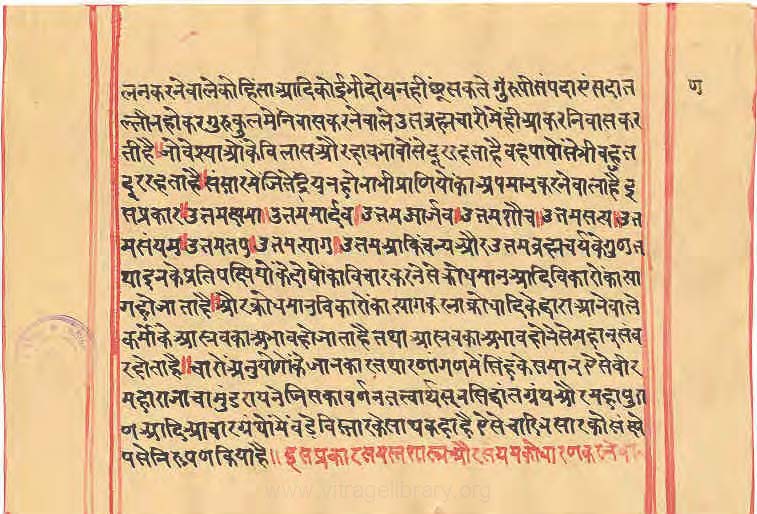 लनकरनेवालेकोहिंसाआदिकोईभीदोषनहीं छूसकते गुणरूपीसंपदाएंसदातल
ण
ल्लीनहोकरगुरुकुलमेनिवासकरनेवालेउसब्रह्मचारीमेंहीआकरनिवासकर
तीहै॥जोवेश्याओंकेविलासऔरहावभावोंसेदूररहताहैवहपापोंसेभीबहुत
दूररहताहै॥संसारमेंअजितेंद्रियनहोनाभीप्राणियोंकाअपमानकरनेवालाहैइ
सप्रकार॥उत्तमक्षमा॥उत्तममार्दव॥उत्तमआर्जव॥उत्तमशौच॥उत्तमसत्य॥उत्त
मसंयम॥उत्तमतप॥उत्तमत्याग॥उत्तमआकिंचन्यऔरउत्तमब्रह्मचर्यकेगुणत
थाइनकेप्रतिपक्षियोंकेदोषोंकाविचारकरनेसेक्रोधमानआदिविकारोंकात्या
गहोजाताहै॥औरक्रोधमानविकारोंकात्यागकरनाक्रोधादिकेद्वाराआनेवाले
कर्मोंकेआस्रवकाअभावहोजाताहैतथाआस्रवकाअभावहोनेसेमहानसंव
रहोताहै॥चारोंअनुयोगोंकेजानकार तथारणांगणमेंसिंहकेसमानऐसेवीर
महाराजाचामुंडरायनेजिसकावर्णनतत्वार्थसूत्रसिद्धांतग्रंथऔरमहापुरा
णआदिआचारग्रंथोंमेंबडेविस्तारकेसाथकहाहैऐसेचारित्रसारकोसंक्षे
पसेनिरूपणकियाहै॥इसप्रकारसमस्तशास्त्रऔरसंयमकोधारणकरनेवा
www.vitragelibrary.org